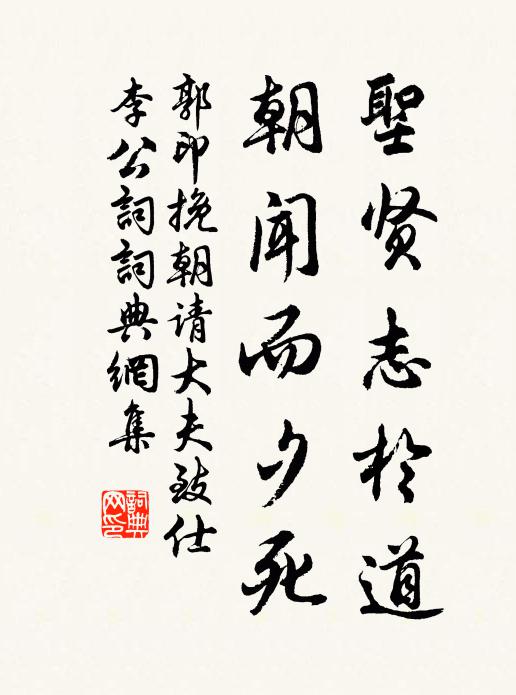 聖贤志於道
朝闻而夕死
郭印挽朝请大夫致仕
李公詞詞典網集
詞典
网印